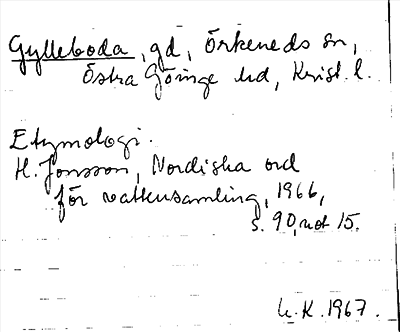 Gylleboda, gd, Örkeneds sn,
Östra Göinge hd, Krist. l.
Etymologi.
H. Jonsson, Nordiska ord
för vattensamling, 1966,
s. 90, not 15.
L.K. 1967.